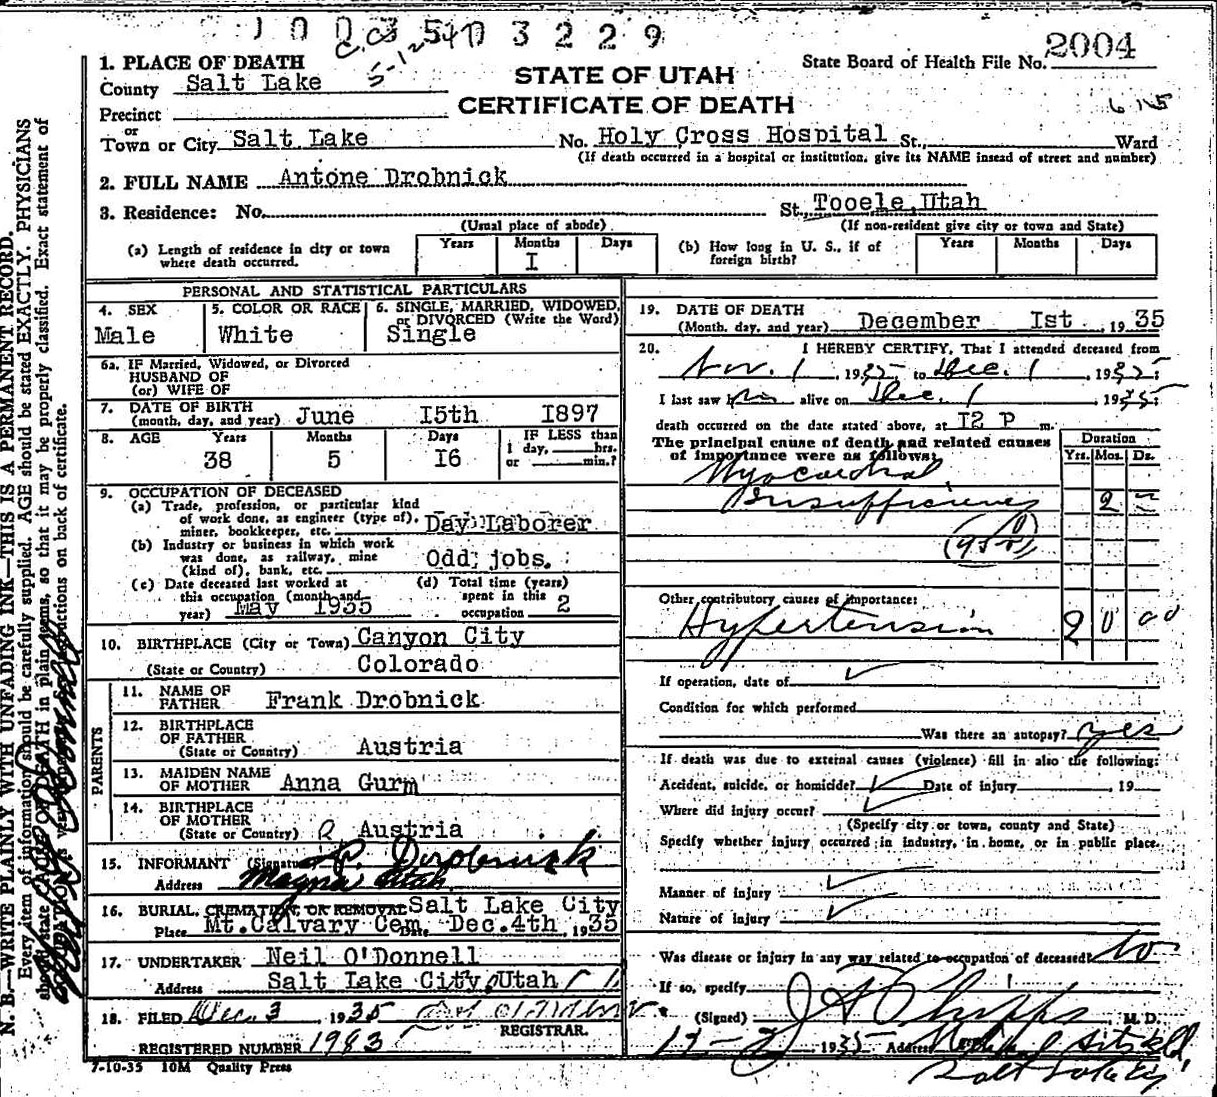 1003503229
2004
1. PLACE OF DEATH
State Board of Health File No.
County Salt Lake
STATE OF UTAH
CERTIFICATE OF DEATH
Precinct
or
Town or City Salt Lake No. Holy Cross Hospital St., Ward
(If death occurred in a hospital or institution, give its NAME insead of street and number)
2. FULL NAME Antone Drobnick
3. Residence: No. St., Tooele, Utah
(Usual place of abode) (If non-resident give city or town and State)
(a) Length of residence in city or town where death occurred. Years Months I Days
(b) How long in U. S., if of foreign birth? Years Months Days
PERSONAL AND STATISTICAL PARTICULARS
4. SEX Male
5. COLOR OR RACE White
6. SINGLE, MARRIED, WIDOWED, or DIVORCED (Write the Word) Single
6a. IF Married, Widowed, or Divorced
HUSBAND OF
(or) WIFE OF
7. DATE OF BIRTH
(month, day, and year) June I5th I897
8. AGE Years 38 Months 5 Days I6
IF LESS than 1 day, hrs. or min.?
9. OCCUPATION OF DECEASED
(a) Trade, profession, or particular kind
of work done, as engineer (type of),
miner, bookkeeper, etc. Day Laborer
(b) Industry or business in which work
was done, as railway, mine
(kind of), bank, etc. Odd jobs.
(c) Date deceased last worked at
this occupation (month and
year) May 1935
(d) Total time (years)
spent in this
occupation 2
10. BIRTHPLACE (City or Town) Canyon City
(State or Country) Colorado
PARENTS
11. NAME OF
FATHER Frank Drobnick
12. BIRTHPLACE
OF FATHER
(State or Country) Austria
13. MAIDEN NAME
OF MOTHER Anna Gurm
14. BIRTHPLACE
OF MOTHER
(State or Country) Austria
15. INFORMANT (Signature) Drobnick
Address Magna Utah
16. BURIAL, CREMATION, OR REMOVAL Salt Lake City
Place Mt. Calvary Cem Date Dec. 4th 1935
17. UNDERTAKER Neil O'Donnell
Address Salt Lake City, Utah
18. FILED Dec. 3, 1935
REGISTRAR.
REGISTERED NUMBER 1983
7-10-35 10M Quality Press
19. DATE OF DEATH
(Month, day, and year) December Ist, 1935
20. I HEREBY CERTIFY, That I attended deceased from
Nov. 1, 1935 to Dec. 1, 1935;
I last saw him alive on Dec. 1, 1935;
death occurred on the date stated above, at I2 P m.
The principal cause of death and related causes
of importance were as follows: Duration
Yrs. Mos. Ds.
Myocardial
Insufficiency 2
Other contributory causes of importance:
Hypertension 2 0 00
If operation, date of
Condition for which performed
Was there an autopsy? yes
If death was due to external causes (violence) fill in also the following:
Accident, suicide, or homicide? Date of injury, 19
Where did injury occur?
(Specify city or town, county and State)
Specify whether injury occurred in industry, in home, or in public place.
Manner of injury
Nature of injury
Was disease or injury in any way related to occupation of deceased? No
If so, specify
(Signed) M. D.
12-2 1935 Address
Salt Lake City
N. B.—WRITE PLAINLY WITH UNFADING INK—THIS IS A PERMANENT RECORD.
Every item of information should be carefully supplied. AGE should be stated EXACTLY. PHYSICIANS
should state CAUSE OF DEATH in plain terms, so that it may be properly classified. Exact statement of
OCCUPATION is very important. instructions on back of certificate.